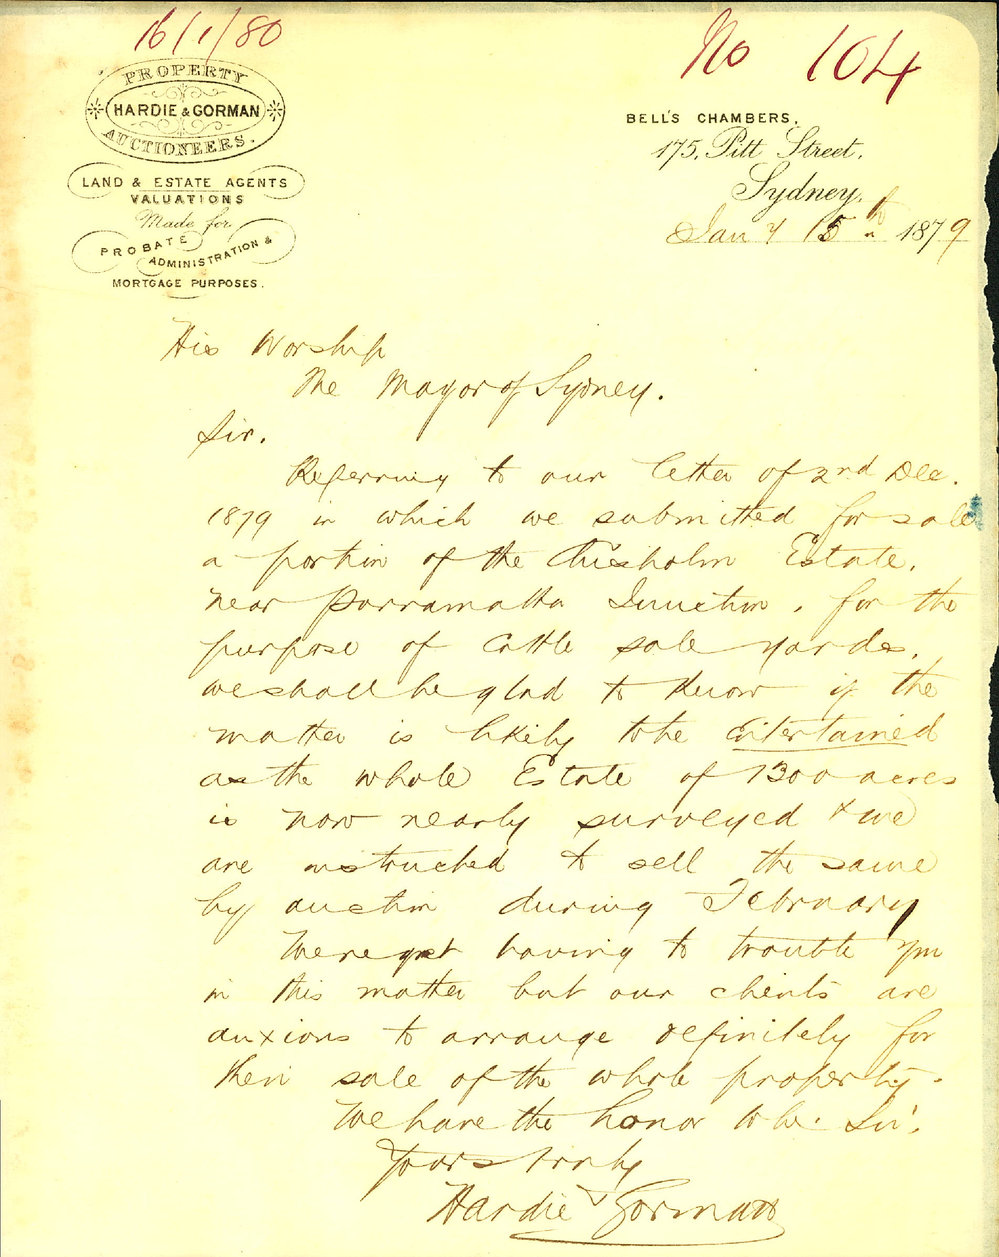 16/1/80
No 104
PROPERTY
HARDIE & GORMAN
AUCTIONEERS.
LAND & ESTATE AGENTS
VALUATIONS
Made for
PROBATE
ADMINISTRATION &
MORTGAGE PURPOSES.
BELL'S CHAMBERS,
175, Pitt Street,
Sydney,
Jany 15th 1879
His Worship
The Mayor of Sydney.
Sir.
Referring to our letter of 2nd Dec.
1879 in which we submitted for sale
a portion of the Chisholm Estate,
near Parramatta Junction, for the
purpose of Cattle sale yards,
we shall be glad to know if the
matter is likely to be entertained
as the whole Estate of 1300 acres
is now nearly surveyed & we
are instructed to sell the same
by auction during February
We regret having to trouble you
in this matter but our clients are
anxious to arrange definitely for
their sale of the whole property.
We have the honor to be. Sir,
Yours truly
Hardie & Gorman